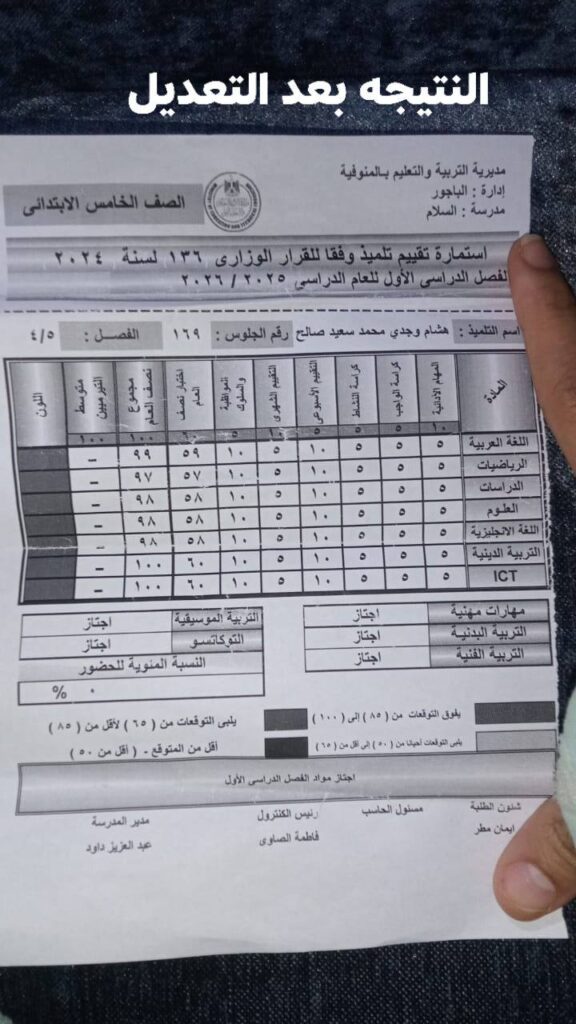 النتيجه بعد التعديل
مديرية التربية والتعليم بالمنوفية
إدارة : الباجور
مدرسة : السلام
الصف الخامس الابتدائى
استمارة تقييم تلميذ وفقا للقرار الوزارى ١٣٦ لسنة ٢٠٢٤
لفصل الدراسى الأول للعام الدراسى ٢٠٢٥ / ٢٠٢٦
اسم التلميذ : هشام وجدي محمد سعيد صالح رقم الجلوس : ١٦٩ الفصل : ٤/٥
المادة المهام الأدائية كراسة الواجب كراسة النشاط التقييم الأسبوعى التقييم الشهرى المواظبة والسلوك اختبار نصف العام مجموع نصف العام متوسط الترمين اللون
١٠ ٥ ٥ ٥ ١٠ ٥ ١٠٠ ١٠٠
اللغة العربية ٥ ٥ ٥ ١٠ ٥ ١٠ ٥٩ ٩٩ –
الرياضيات ٥ ٥ ٥ ١٠ ٥ ١٠ ٥٧ ٩٧ –
الدراسات ٥ ٥ ٥ ١٠ ٥ ١٠ ٥٨ ٩٨ –
العلوم ٥ ٥ ٥ ١٠ ٥ ١٠ ٥٨ ٩٨ –
اللغة الانجليزية ٥ ٥ ٥ ١٠ ٥ ١٠ ٥٨ ٩٨ –
التربية الدينية ٥ ٥ ٥ ١٠ ٥ ١٠ ٦٠ ١٠٠ –
ICT ٥ ٥ ٥ ١٠ ٥ ١٠ ٦٠ ١٠٠ –
مهارات مهنية اجتاز
التربية البدنية اجتاز
التربية الفنية اجتاز
التربية الموسيقية اجتاز
التوكاتسو اجتاز
النسبة المئوية للحضور
٠ %
يفوق التوقعات من ( ٨٥ ) إلى ( ١٠٠ )
يلبى التوقعات من ( ٦٥ ) لأقل من ( ٨٥ )
يلبى التوقعات أحيانا من ( ٥٠ ) إلى أقل من ( ٦٥ )
أقل من المتوقع - ( أقل من ٥٠ )
اجتاز مواد الفصل الدراسى الأول
شئون الطلبة مسئول الحاسب رئيس الكنترول مدير المدرسة
ايمان مطر فاطمة الصاوى عبد العزيز داود